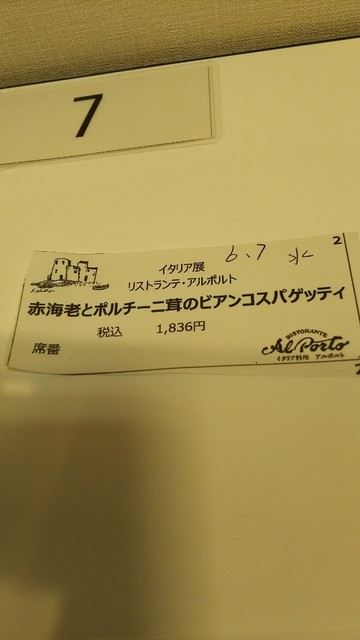 7
2
イタリア展
6、7 水
リストランテ・アルポルト
赤海老とポルチーニ茸のビアンコスパゲッティ
税込 1,836円
席番
RISTORANTE
Al Porto
イタリア料理 アルポルト